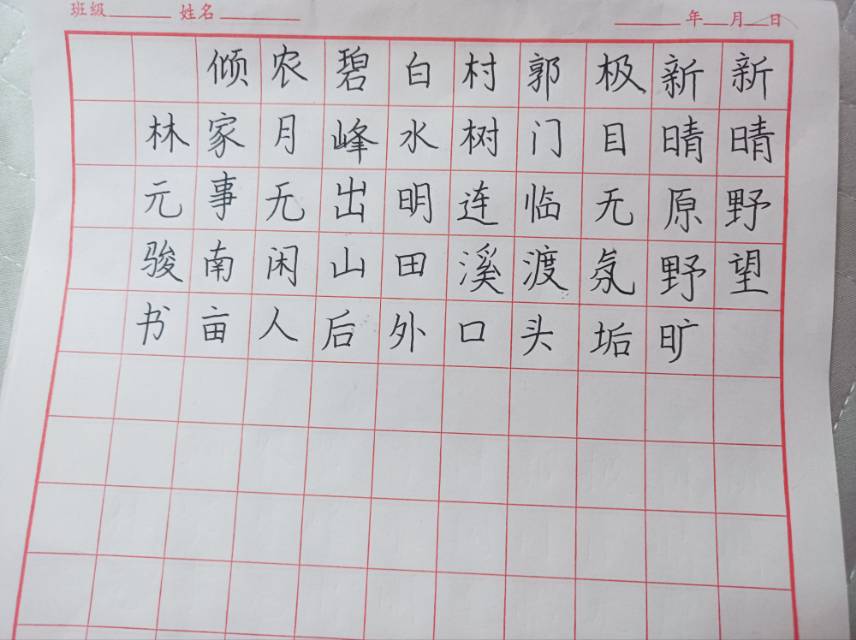 班级 姓名 年 月 日
新晴野望
新晴原野旷
极目无氛垢
郭门临渡头
村树连溪口
白水明田外
碧峰出山后
农月无闲人
倾家事南亩
林元骏书